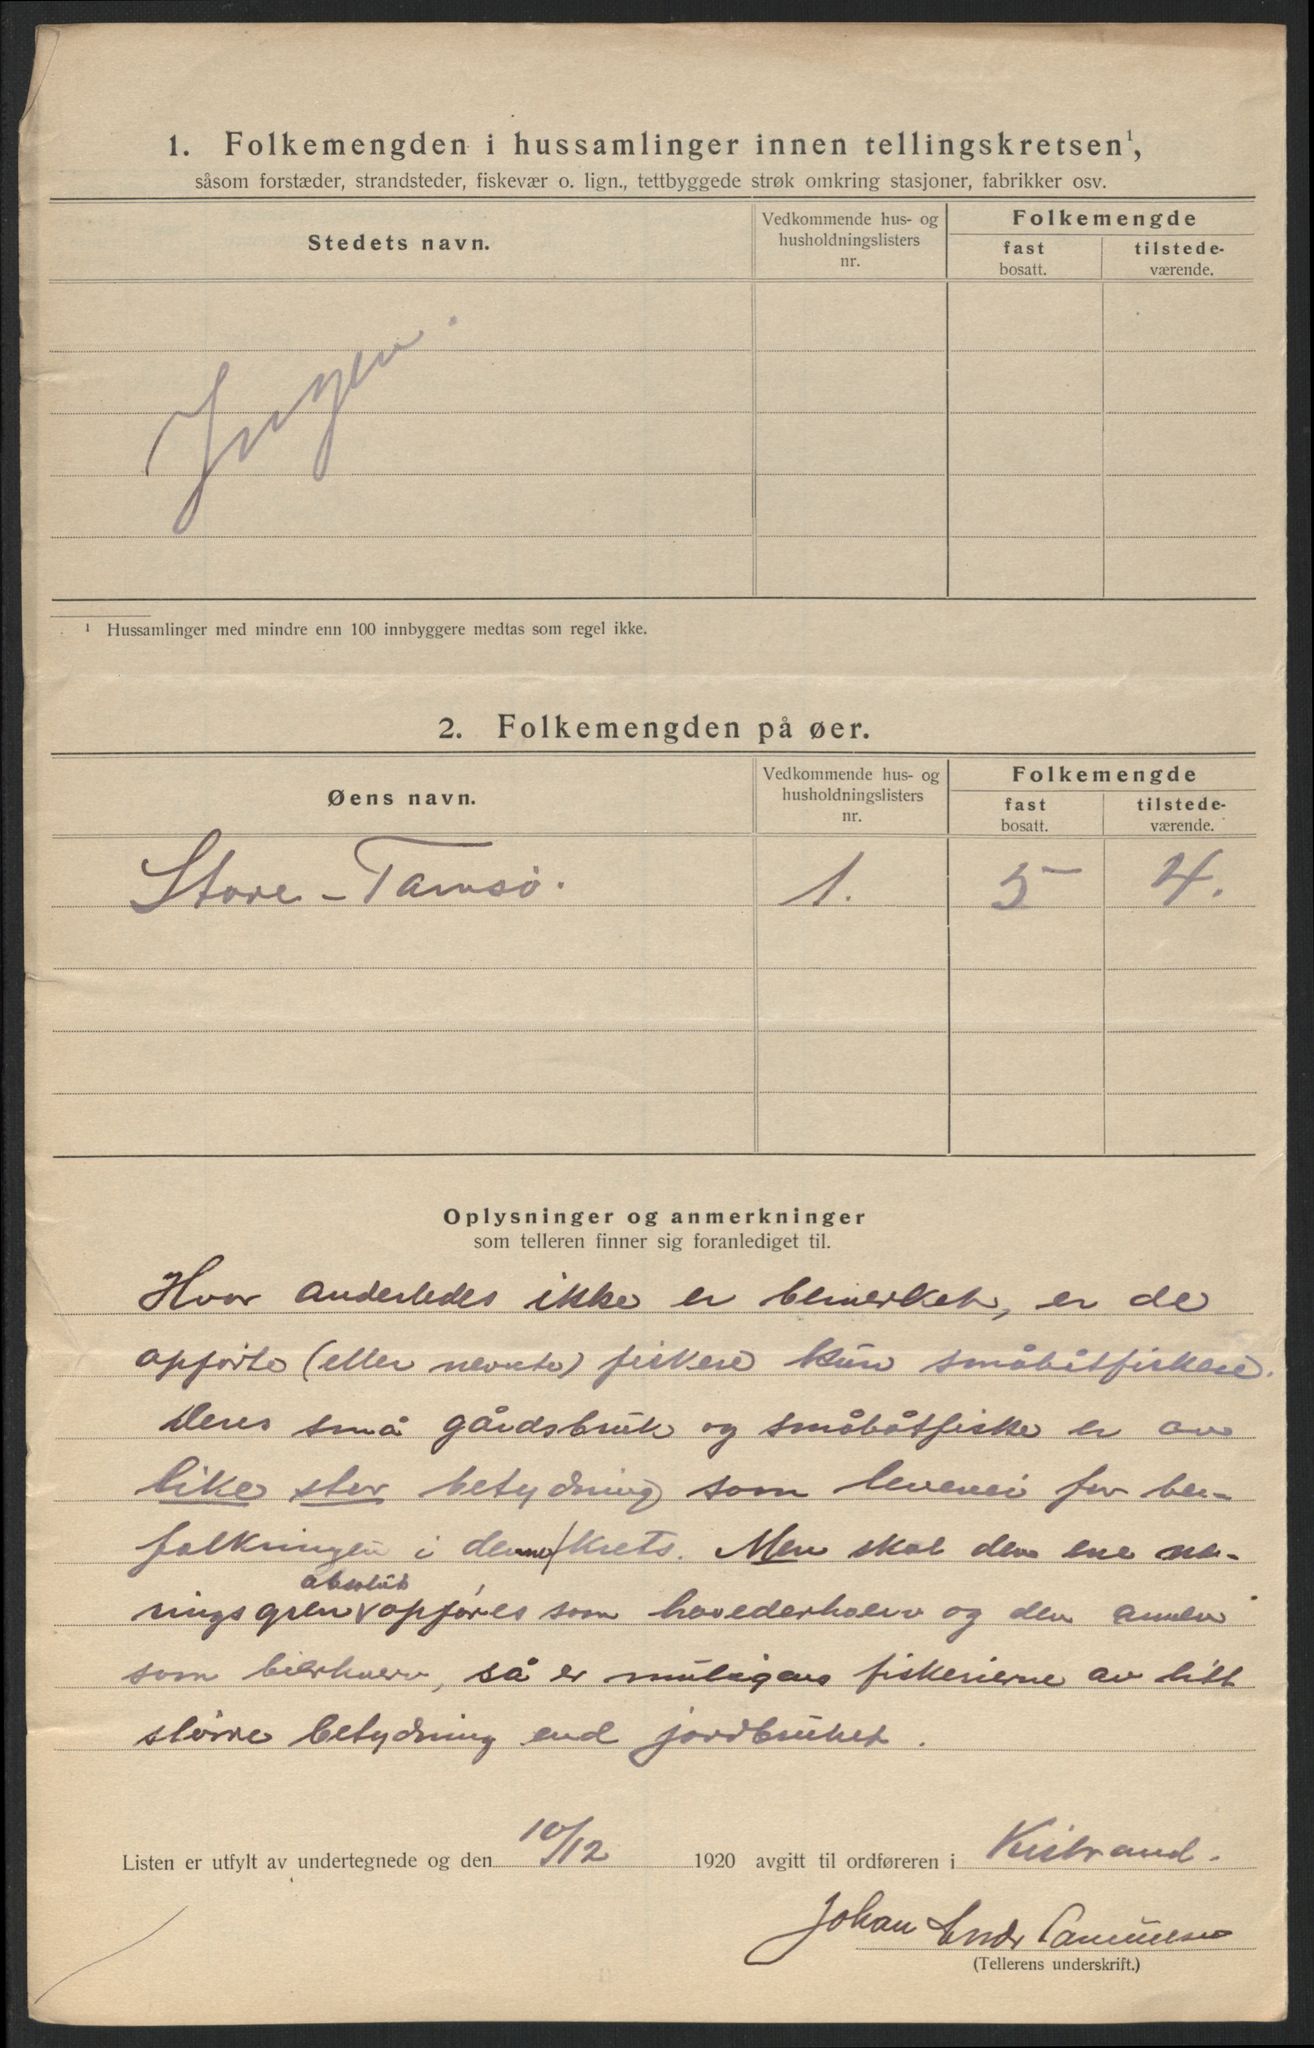 1. Folkemengden i hussamlinger innen tellingskretsen¹,
såsom forstæder, strandsteder, fiskevær o. lign., tettbyggede strøk omkring stasjoner, fabrikker osv.
Stedets navn.
Vedkommende hus- og husholdningslisters nr.
Folkemengde
fast bosatt.
tilstede-værende.
Ingen.
¹ Hussamlinger med mindre enn 100 innbyggere medtas som regel ikke.
2. Folkemengden på øer.
Øens navn.
Vedkommende hus- og husholdningslisters nr.
Folkemengde
fast bosatt.
tilstede-værende.
Store-Tamsø. 1. 5 4.
Oplysninger og anmerkninger
som telleren finner sig foranlediget til.
Hvor anderledes ikke er bemerket, er de
opførte (eller nevnte) fiskere kun småbåtfiskere.
Deres små gårdsbruk og småbåtfiske er av
like stor betydning som levevei for be-
folkningen i denne krets. Men skal den ene næ-
ringsgren absolut opføres som hovederhverv og den annen
som bierhverv, så er muligens fiskerierne av litt
større betydning end jordbruket.
Listen er utfylt av undertegnede og den 10/12 1920 avgitt til ordføreren i Kistrand.
Johan Endr Samuelsen
(Tellerens underskrift.)